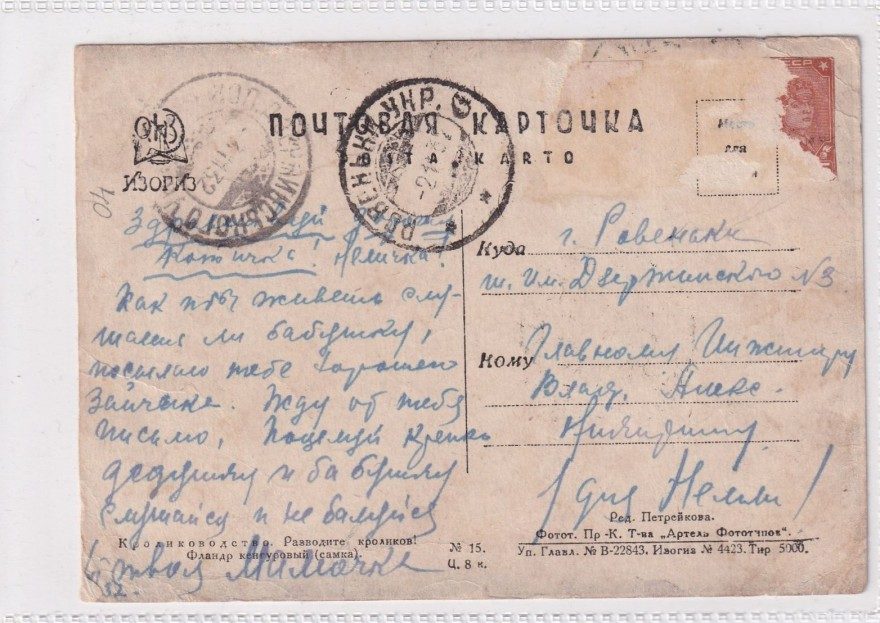 ПОЧТОВАЯ КАРТОЧКА
KARTO
ИЗОГИЗ
СССР
для
04
РОВЕНЬКИ УКР.
Здравствуй
Котичка! Неличка!
Как ты живешь слу-
шаешь ли бабушку,
посылаю тебе хорошего
Зайчика. Жду от тебя
письмо, Поцелуй крепко
дедушку и бабушку
слушайся и не балуйся
твоя Мамочка
Куда г. Ровеньки
ш. им. Дзержинского №3
Кому Главному Инженеру
Влад. Алекс.
(для Нелли)
Кролиководство. Разводите кроликов!
Фландр кенгуровый (самка).
№ 15.
Ц. 8 к.
Ред. Петрейкова.
Фотот. Пр-К. Т-ва „Артель Фототипов".
Уп. Главл. № В-22843. Изогиз № 4423. Тир 5000.